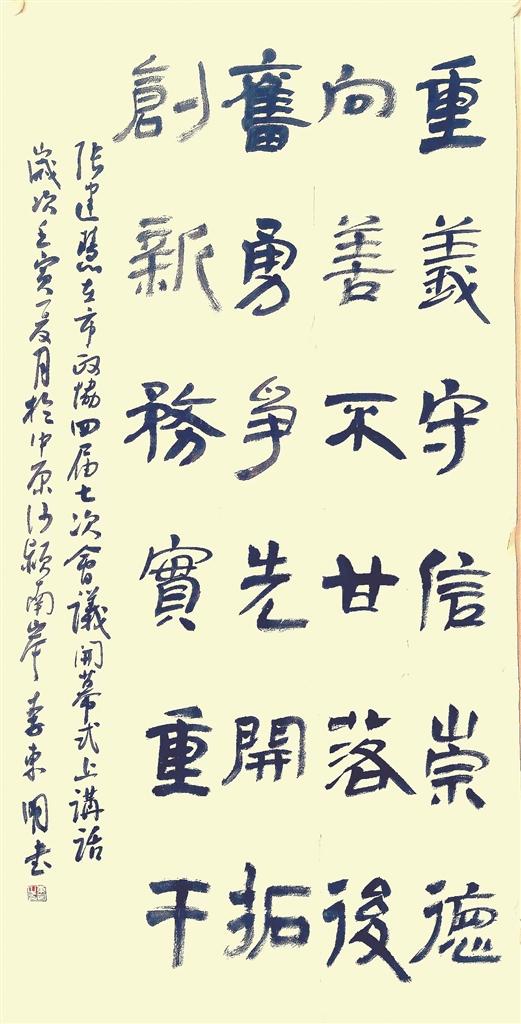 重義守信崇德
向善不甘落後
奮勇爭先開拓
創新務實重干
张建慧在市政協四届七次會議開幕式上講話
歲次壬寅夏月於中原沙潁南岸李東周书